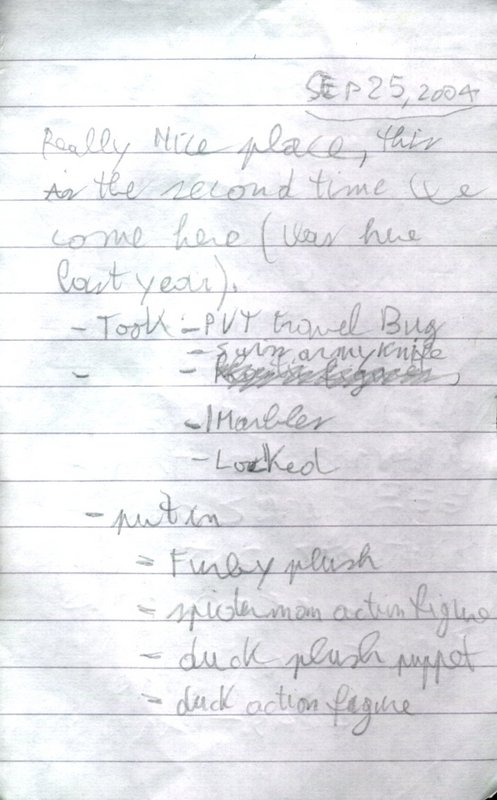 SEP 25, 2004
Really Nice place, this
is the second time We
come here (Was here
last year).
- Took - PVT travel Bug
- Swiss army knife
- -
- Marbles
- Locked
- put in
= Furby plush
= spiderman action figure
- duck plush puppet
- duck action figure